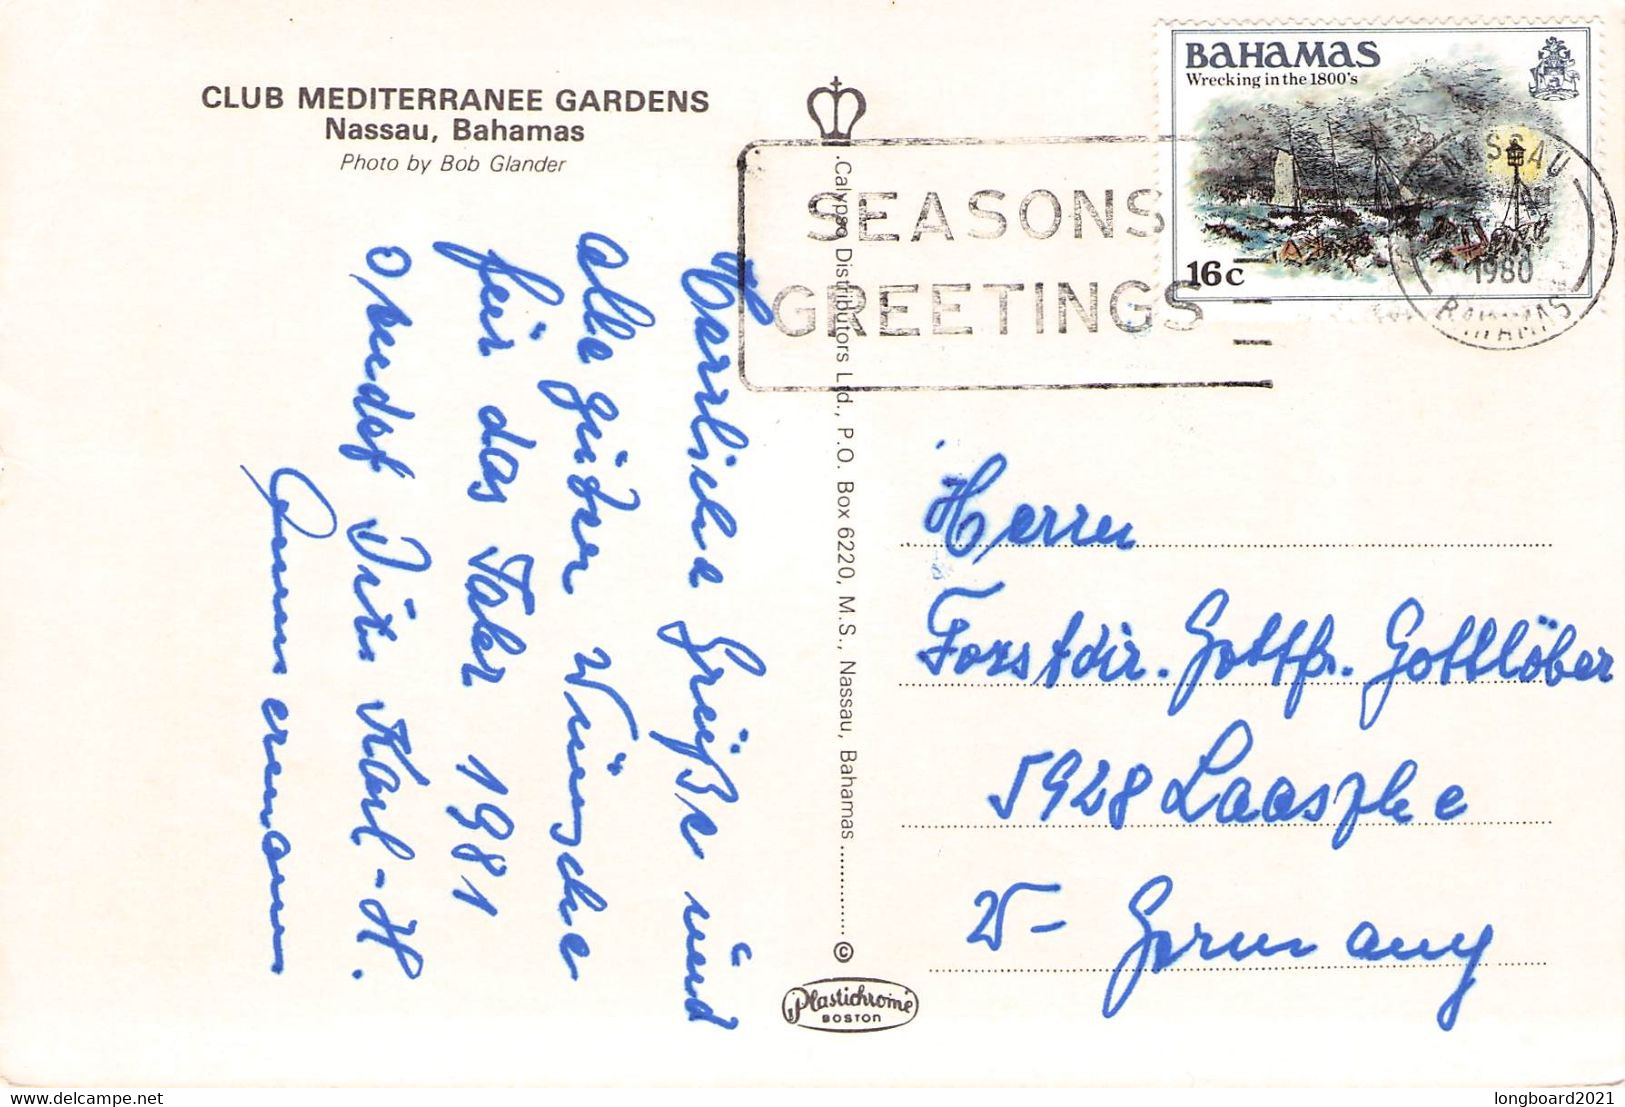 CLUB MEDITERRANEE GARDENS
Nassau, Bahamas
Photo by Bob Glander
Herzliche Grüße und
alle guten Wünsche
für das Jahr 1981
Karl-H.
Calypso Distributors Ltd., P.O. Box 6220, M.S., Nassau, Bahamas ............ ©
Plastichrome
BOSTON
SEASONS
GREETINGS
BAHAMAS
Wrecking in the 1800's
16c
NASSAU
1980
BAHAMAS
Herrn
Forstdir. Gottfr. Gottlöber
5928 Laasphe
W- Germany
longboard2021